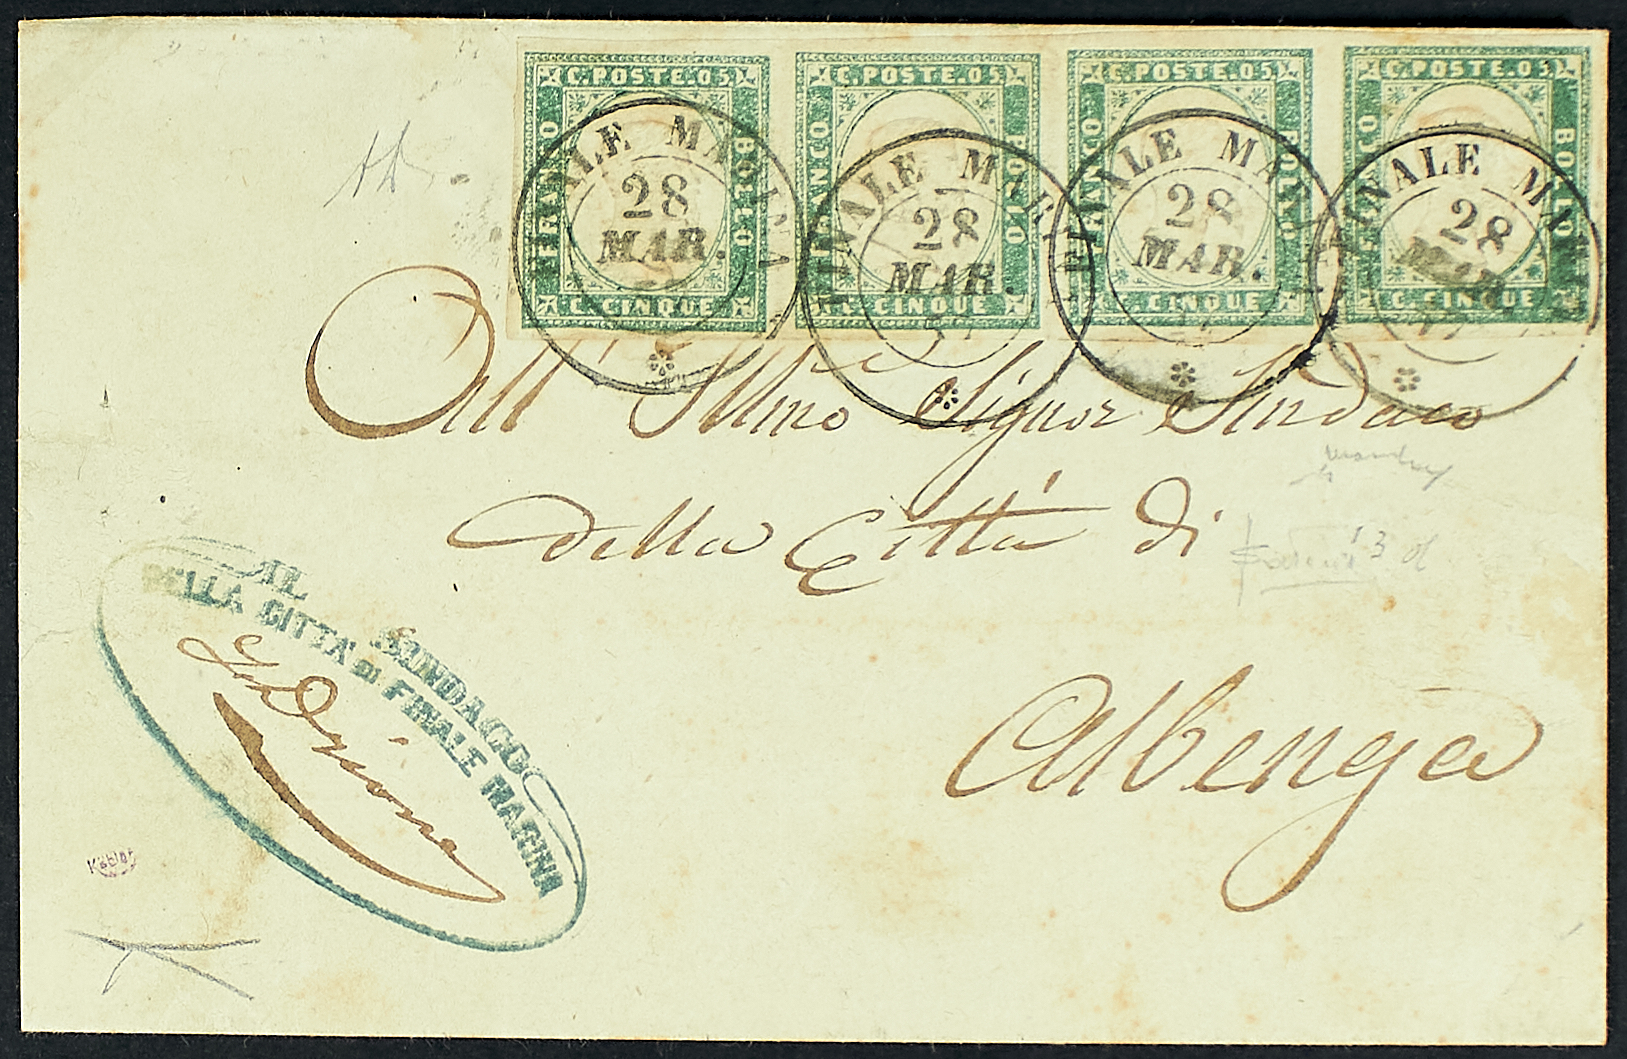 C. POSTE. 05. C. POSTE. 05. C. POSTE. 05. C. POSTE. 05.
FRANCO BOLLO FRANCO BOLLO FRANCO BOLLO FRANCO BOLLO
C. CINQUE C. CINQUE C. CINQUE C. CINQUE
FINALE MARINA FINALE MAR FINALE MAR FINALE MA
28 28 28 28
MAR. MAR. MAR. MAR
57
All' Illmo Signor Sindaco
della Città di
Albenga
IL SINDACO
DELLA CITTA' DI FINALE MARINA